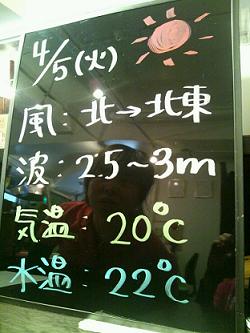 4/5(火)
風:北→北東
波:2.5~3m
気温:20℃
水温:22℃